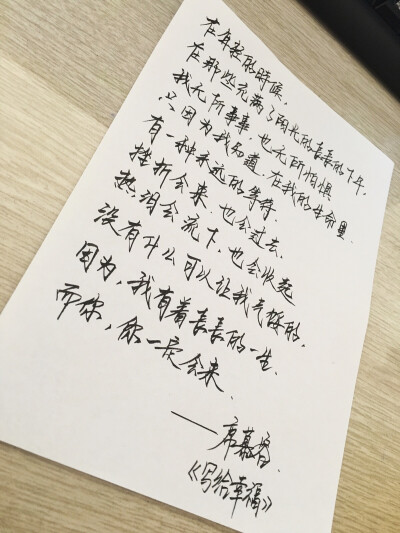 在年轻的時候,
在那些充满了阳光的長長的下午,
我无所事事,也无所怕惧
只因为我知道,在我的生命里
有一种永远的等待.
挫折会来,也会过去.
热泪会流下,也会收起
没有什么可以让我气馁的,
因为,我有着長長的一生.
而你,你一定会来.
——席慕蓉.
《写给幸福》